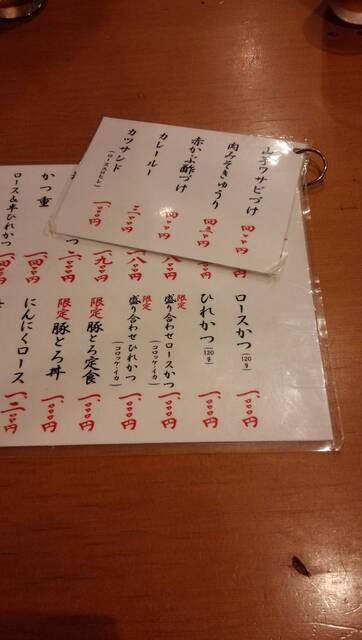 山芋ワサビづけ 四〇〇円
肉みそきゅうり 四五〇円
赤かぶ酢づけ 四〇〇円
カレールー 三〇〇円
カツサンド (ロース又はヒレ) 一、〇〇〇円
ロースかつ (120g) 一、〇〇〇円
ひれかつ (120g) 一、〇〇〇円
限定 盛り合わせロースかつ (コロッケ・イカ) 一、〇〇〇円
限定 盛り合わせひれかつ (コロッケ・イカ) 一、〇〇〇円
限定 豚とろ定食 一、〇〇〇円
限定 豚とろ丼 一、〇〇〇円
にんにくロース 一、二〇〇円
かつ重
ロース&半ひれかつ